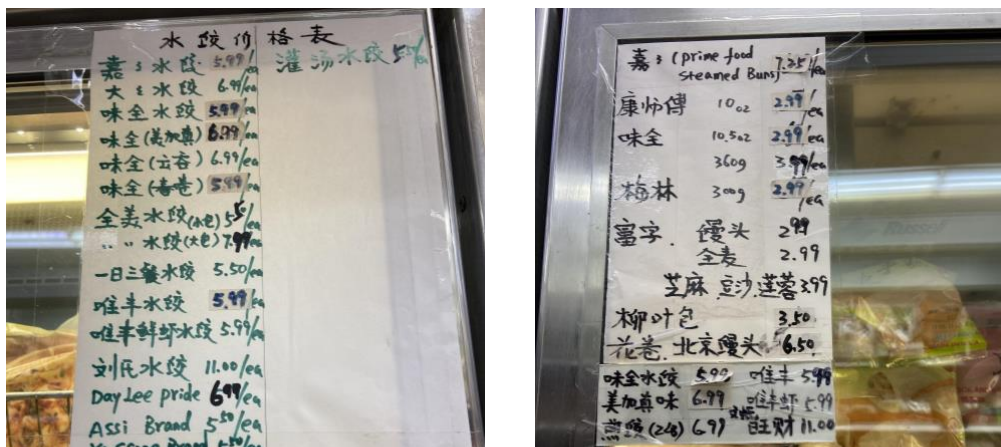 水饺价格表
嘉嘉水饺 5.99/ea
大大水饺 6.99/ea
味全水饺 5.99/ea
味全(美加真) 6.99/ea
味全(云吞) 6.99/ea
味全(春卷) 5.99/ea
全美水饺(小包) 5.50/ea
〃 〃 水饺(大包) 7.99/ea
一日三餐水饺 5.50/ea
唯丰水饺 5.99/ea
唯丰鲜虾水饺 5.99/ea
刘氏水饺 11.00/ea
Day Lee pride 6.99/ea
Assi Brand 5.50/ea
灌汤水饺
嘉嘉 (prime food 7.25/ea
steamed Buns)
康师傅 10oz 2.99/ea
味全 10.5oz 2.99/ea
360g 3.99/ea
梅林 300g 2.99/ea
富字. 馒头 2.99
全麦 2.99
芝麻 豆沙 莲蓉 3.99
柳叶包 3.50
花卷. 北京馒头 6.50
味全水饺 5.99 唯丰 5.99
美加真味 6.99 唯丰虾 5.99
6.99 旺财 11.00